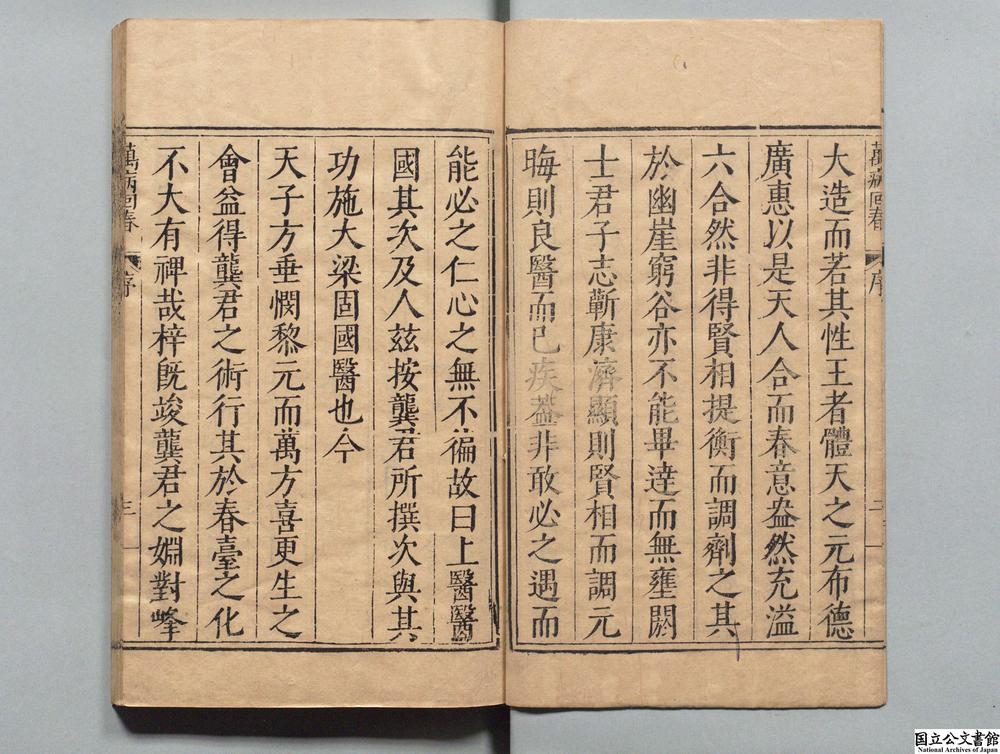 萬病回春
序
二
大造而若其性王者體天之元布德
廣惠以是天人合而春意盎然充溢
六合然非得賢相提衡而調劑之其
於幽崖窮谷亦不能畢達而無壅閼
士君子志蘄康濟顯則賢相而調元
晦則良醫而已疾蓋非敢必之遇而
能必之仁心之無不徧故曰上醫醫
國其次及人茲按龔君所撰次與其
功施大梁固國醫也今
天子方垂憫黎元而萬方喜更生之
會益得龔君之術行其於春臺之化
不大有裨哉梓既竣龔君之婣對峰
萬病回春
序
三
国立公文書館
National Archives of Japan